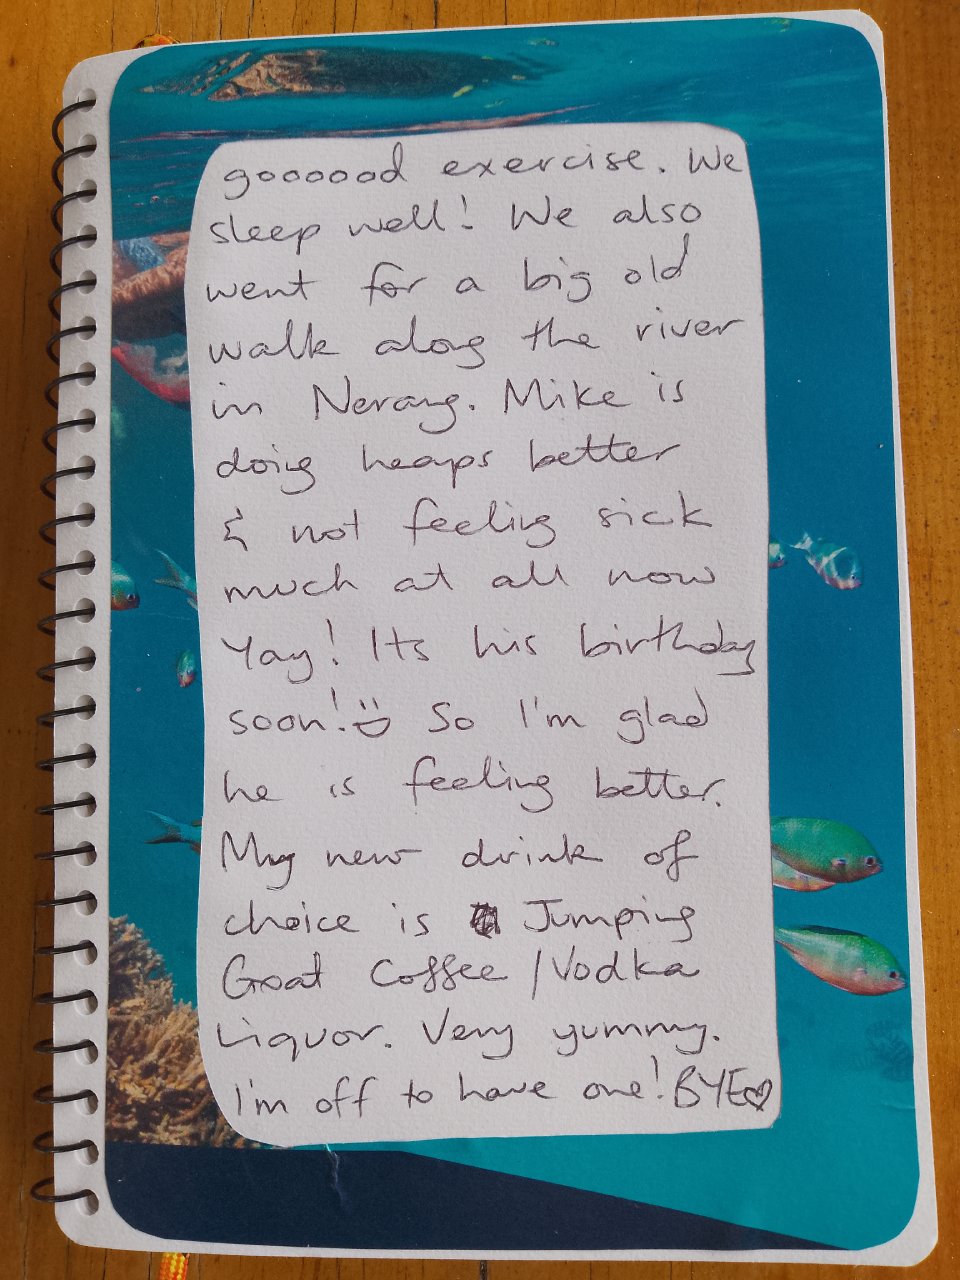 goooood exercise. We
sleep well! We also
went for a big old
walk along the river
in Nerang. Mike is
doing heaps better
& not feeling sick
much at all now
Yay! Its his birthday
soon! So I'm glad
he is feeling better.
My new drink of
choice is Jumping
Goat Coffee/Vodka
Liquor. Very yummy.
I'm off to have one! BYE♡